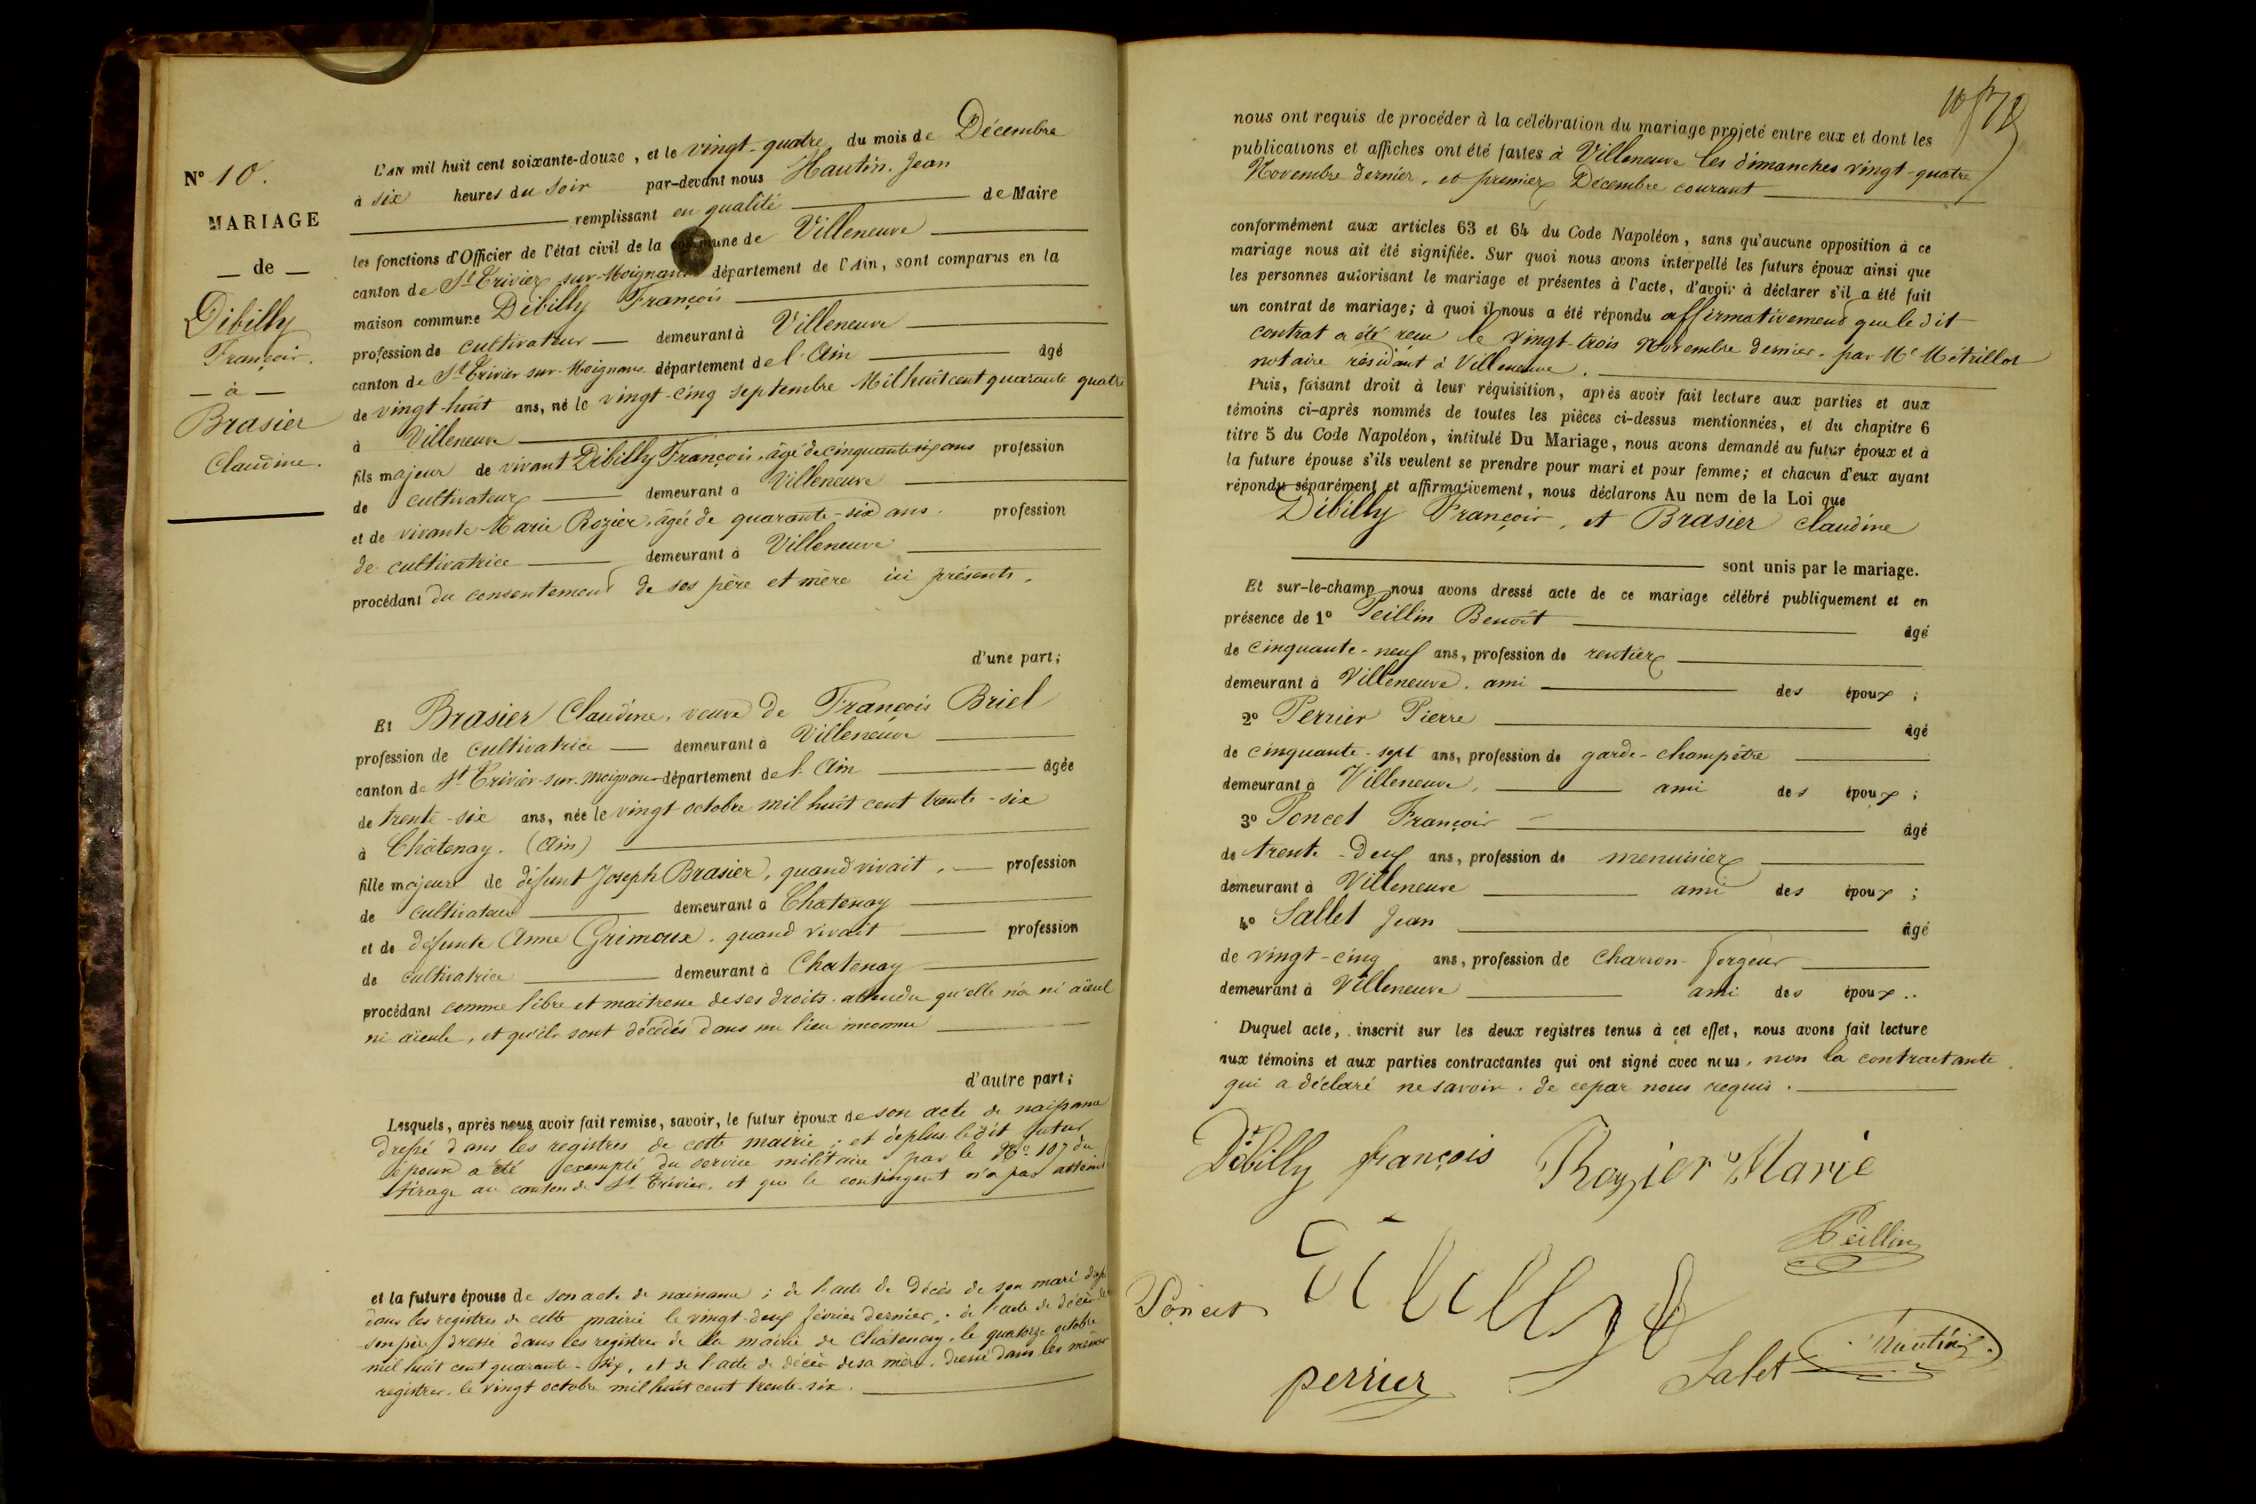 N° 10.
MARIAGE
de
Dibilly
François.
à
Brasier
Claudine.
L'AN mil huit cent soixante-douze, et le vingt-quatre du mois de Décembre
à six heures du soir par-devant nous Hautin Jean
remplissant en qualité de Maire
les fonctions d'Officier de l'état civil de la commune de Villeneuve
canton de St Trivier sur-Moignans département de l'Ain, sont comparus en la
maison commune Dibilly François
profession de cultivateur demeurant à Villeneuve
canton de St Trivier sur-Moignans département de l'Ain âgé
de vingt-huit ans, né le vingt-cinq septembre Mil huit cent quarante quatre
à Villeneuve
fils majeur de vivant Dibilly François, âgé de cinquante six ans profession
de cultivateur demeurant à Villeneuve
et de vivante Marie Rozier, âgée de quarante-six ans. profession
de cultivatrice demeurant à Villeneuve
procédant du consentement de ses père et mère ici présents.
d'une part;
Et Brasier Claudine, veuve de François Briel
profession de cultivatrice demeurant à Villeneuve
canton de St Trivier-sur-Moignans département de l'Ain âgée
de trente-six ans, née le vingt octobre mil huit cent trente-six
à Châtenay. (Ain)
fille majeure de défunt Joseph Brasier, quand vivait, profession
de cultivateur demeurant à Chatenay
et de défunte Anne Grimoux, quand vivait profession
de cultivatrice demeurant à Chatenay
procédant comme libre et maitresse de ses droits, attendu qu'elle n'a ni aïeul
ni aïeule, et qu'ils sont décédés dans un lieu inconnu
d'autre part;
Lesquels, après nous avoir fait remise, savoir, le futur époux de son acte de naissance
dressé dans les registres de cette mairie; et deplus le dit futur
époux a été exempté du service militaire par le N° 107 du
tirage au canton de St Trivier, et que le contingent n'a pas atteint
et la future épouse de son acte de naissance; de l'acte de décès de son mari
dans les registres de cette mairie le vingt-deux février dernier; de l'acte de décès de
son père, dressé dans les registres de la mairie de Châtenay, le quatorze octobre
mil huit cent quarante-six, et de l'acte de décès de sa mère, dressé dans les mêmes
registres, le vingt octobre mil huit cent trente-six.
nous ont requis de procéder à la célébration du mariage projeté entre eux et dont les
publications et affiches ont été faites à Villeneuve les dimanches vingt-quatre
Novembre dernier, et premier Décembre courant
conformément aux articles 63 et 64 du Code Napoléon, sans qu'aucune opposition à ce
mariage nous ait été signifiée. Sur quoi nous avons interpellé les futurs époux ainsi que
les personnes autorisant le mariage et présentes à l'acte, d'avoir à déclarer s'il a été fait
un contrat de mariage; à quoi il nous a été répondu affirmativement que le dit
contrat a été reçu le vingt-trois Novembre dernier, par Me Métrillot
notaire résidant à Villeneuve.
Puis, faisant droit à leur réquisition, après avoir fait lecture aux parties et aux
témoins ci-après nommés de toutes les pièces ci-dessus mentionnées, et du chapitre 6
titre 5 du Code Napoléon, intitulé Du Mariage, nous avons demandé au futur époux et à
la future épouse s'ils veulent se prendre pour mari et pour femme; et chacun d'eux ayant
répondu séparément et affirmativement, nous déclarons Au nom de la Loi que
Dibilly François, et Brasier Claudine
sont unis par le mariage.
Et sur-le-champ nous avons dressé acte de ce mariage célébré publiquement et en
présence de 1° Peillin Benoît âgé
de cinquante-neuf ans, profession de rentier
demeurant à Villeneuve, ami des époux;
2° Perrier Pierre âgé
de cinquante-sept ans, profession de garde-champêtre
demeurant à Villeneuve, ami des époux;
3° Poncet François âgé
de trente-deux ans, profession de menuisier
demeurant à Villeneuve ami des époux;
4° Sallet Jean âgé
de vingt-cinq ans, profession de charron-forgeur
demeurant à Villeneuve ami des époux..
Duquel acte, inscrit sur les deux registres tenus à cet effet, nous avons fait lecture
aux témoins et aux parties contractantes qui ont signé avec nous, non la contractante
qui a déclaré ne savoir, de ce par nous requis.
Débilly françois Rozier Marie
Peillin
Poncet
perrier Salet Hautin